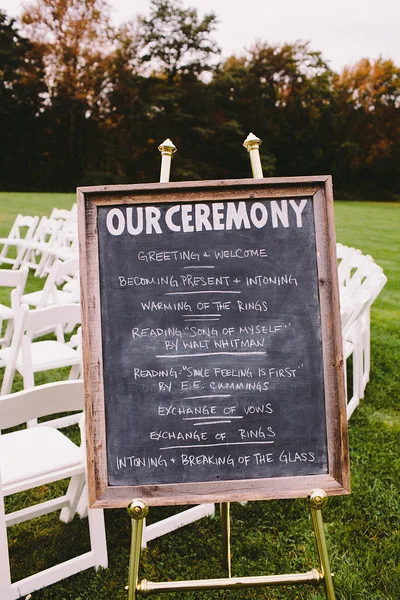 OUR CEREMONY
GREETING + WELCOME
BECOMING PRESENT + INTONING
WARMING OF THE RINGS
READING: "SONG OF MYSELF"
BY WALT WHITMAN
READING: "SINCE FEELING IS FIRST"
BY E.E. CUMMINGS
EXCHANGE OF VOWS
EXCHANGE OF RINGS
INTONING + BREAKING OF THE GLASS